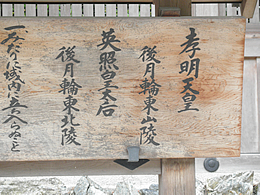 孝明天皇
後月輪東山陵
英照皇太后
後月輪東北陵
一みだりに域内に立入らぬこと